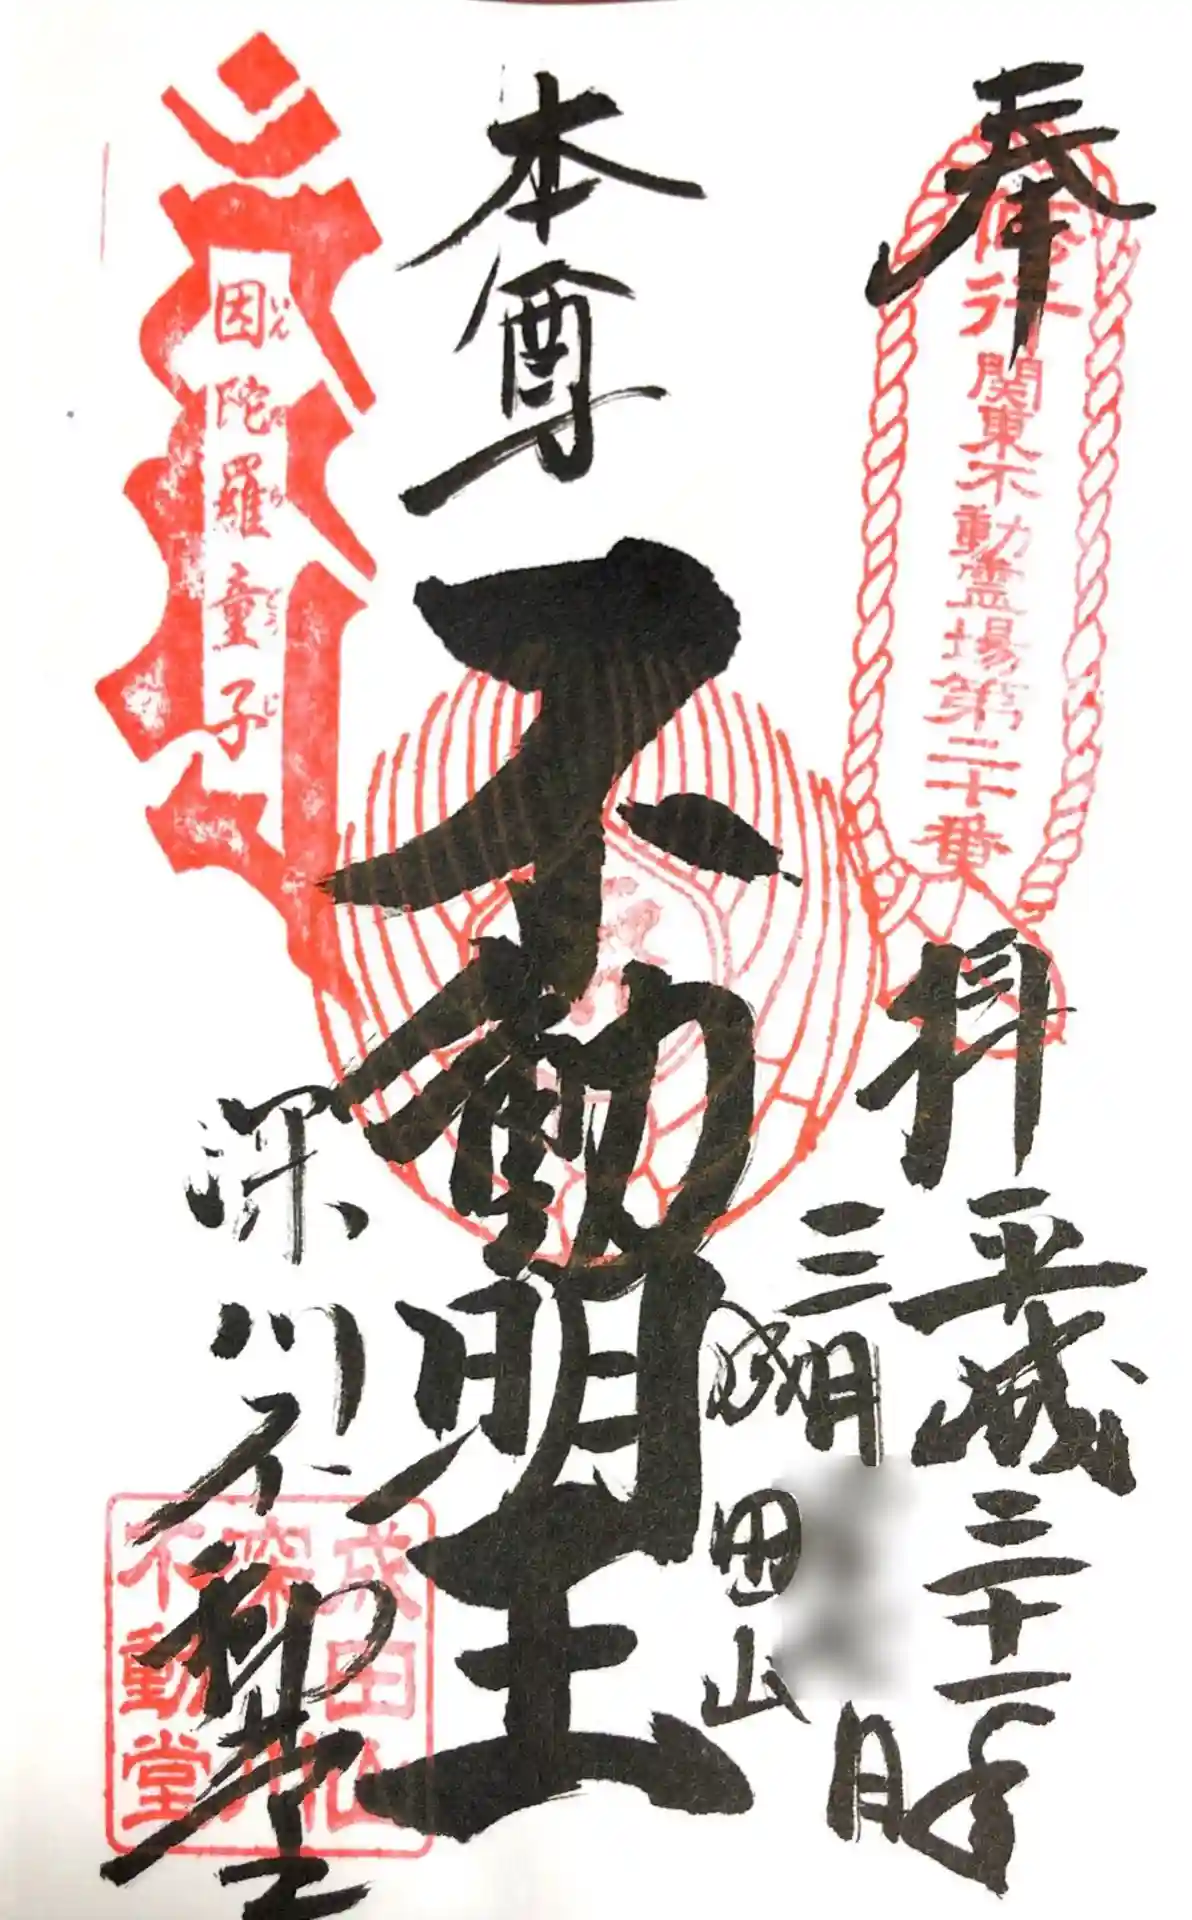 奉拝
修行
関東不動霊場第二十番
平成三十一年
三月
日
本尊
不動明王
成田山
深川不動堂
因陀羅童子
いんだらどうじ
成田山
深川
不動堂